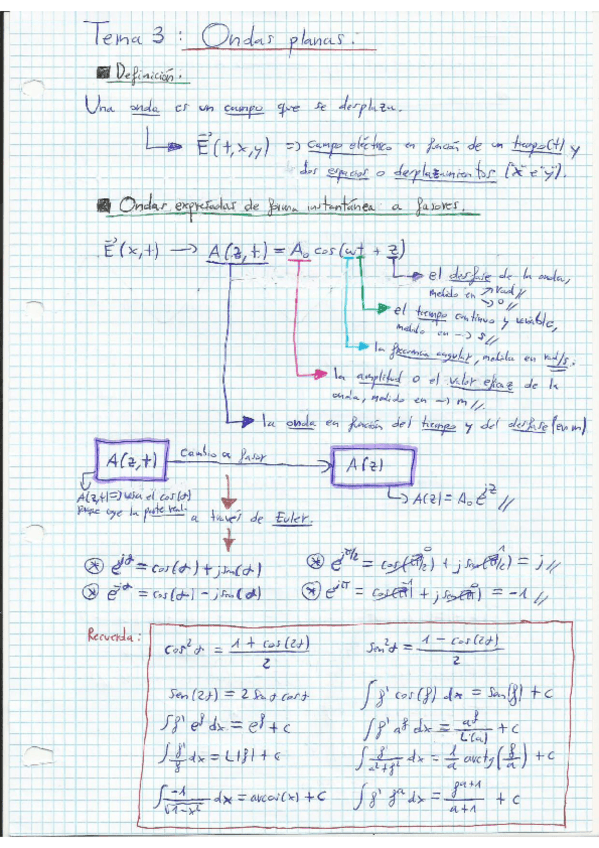 Tema 3: Ondas planas:
Definición.
Una onda es un campo que se desplaza.
E⃗(t,x,y) => campo eléctrico en función de un tiempo(t) y
dos espacios o desplazamientos ("x" e "y").
Ondas expresadas de forma instantánea a fasores.
E⃗(x,t) → A(z,t) = A₀ cos(ωt + z)
el desfase de la onda,
medido en → rad //
→ o //
el tiempo continuo y variable,
medido en → s //
la frecuencia angular, medida en rad/s.
la amplitud o el valor eficaz de la
onda, medido en → m //.
la onda en función del tiempo y del desfase (en m)
A(z,t) cambio a fasor A(z)
A(z,t) => usa el cos(α)
porque coge la parte real
A(z) = A₀ e^{jz} //
a través de Euler.
* e^{jα} = cos(α) + j sen(α)
* e^{jπ/2} = cos(π/2)⁰ + j sen(π/2)¹ = j //
* e^{-jα} = cos(α) - j sen(α)
* e^{jπ} = cos(π)⁻¹ + j sen(π)⁰ = -1 //
Recuerda:
cos²α = (1 + cos(2α))/2
sen²α = (1 - cos(2α))/2
sen(2α) = 2 senα cosα
∫ f' cos(f) dx = sen(f) + c
∫ f' e^f dx = e^f + c
∫ f' a^f dx = a^f/L(a) + c
∫ f'/f dx = L|f| + c
∫ f'/(a²+f²) dx = 1/a arctg(f/a) + c
∫ -1/√(1-x²) dx = arccos(x) + c
∫ f' f^a dx = f^{a+1}/(a+1) + c